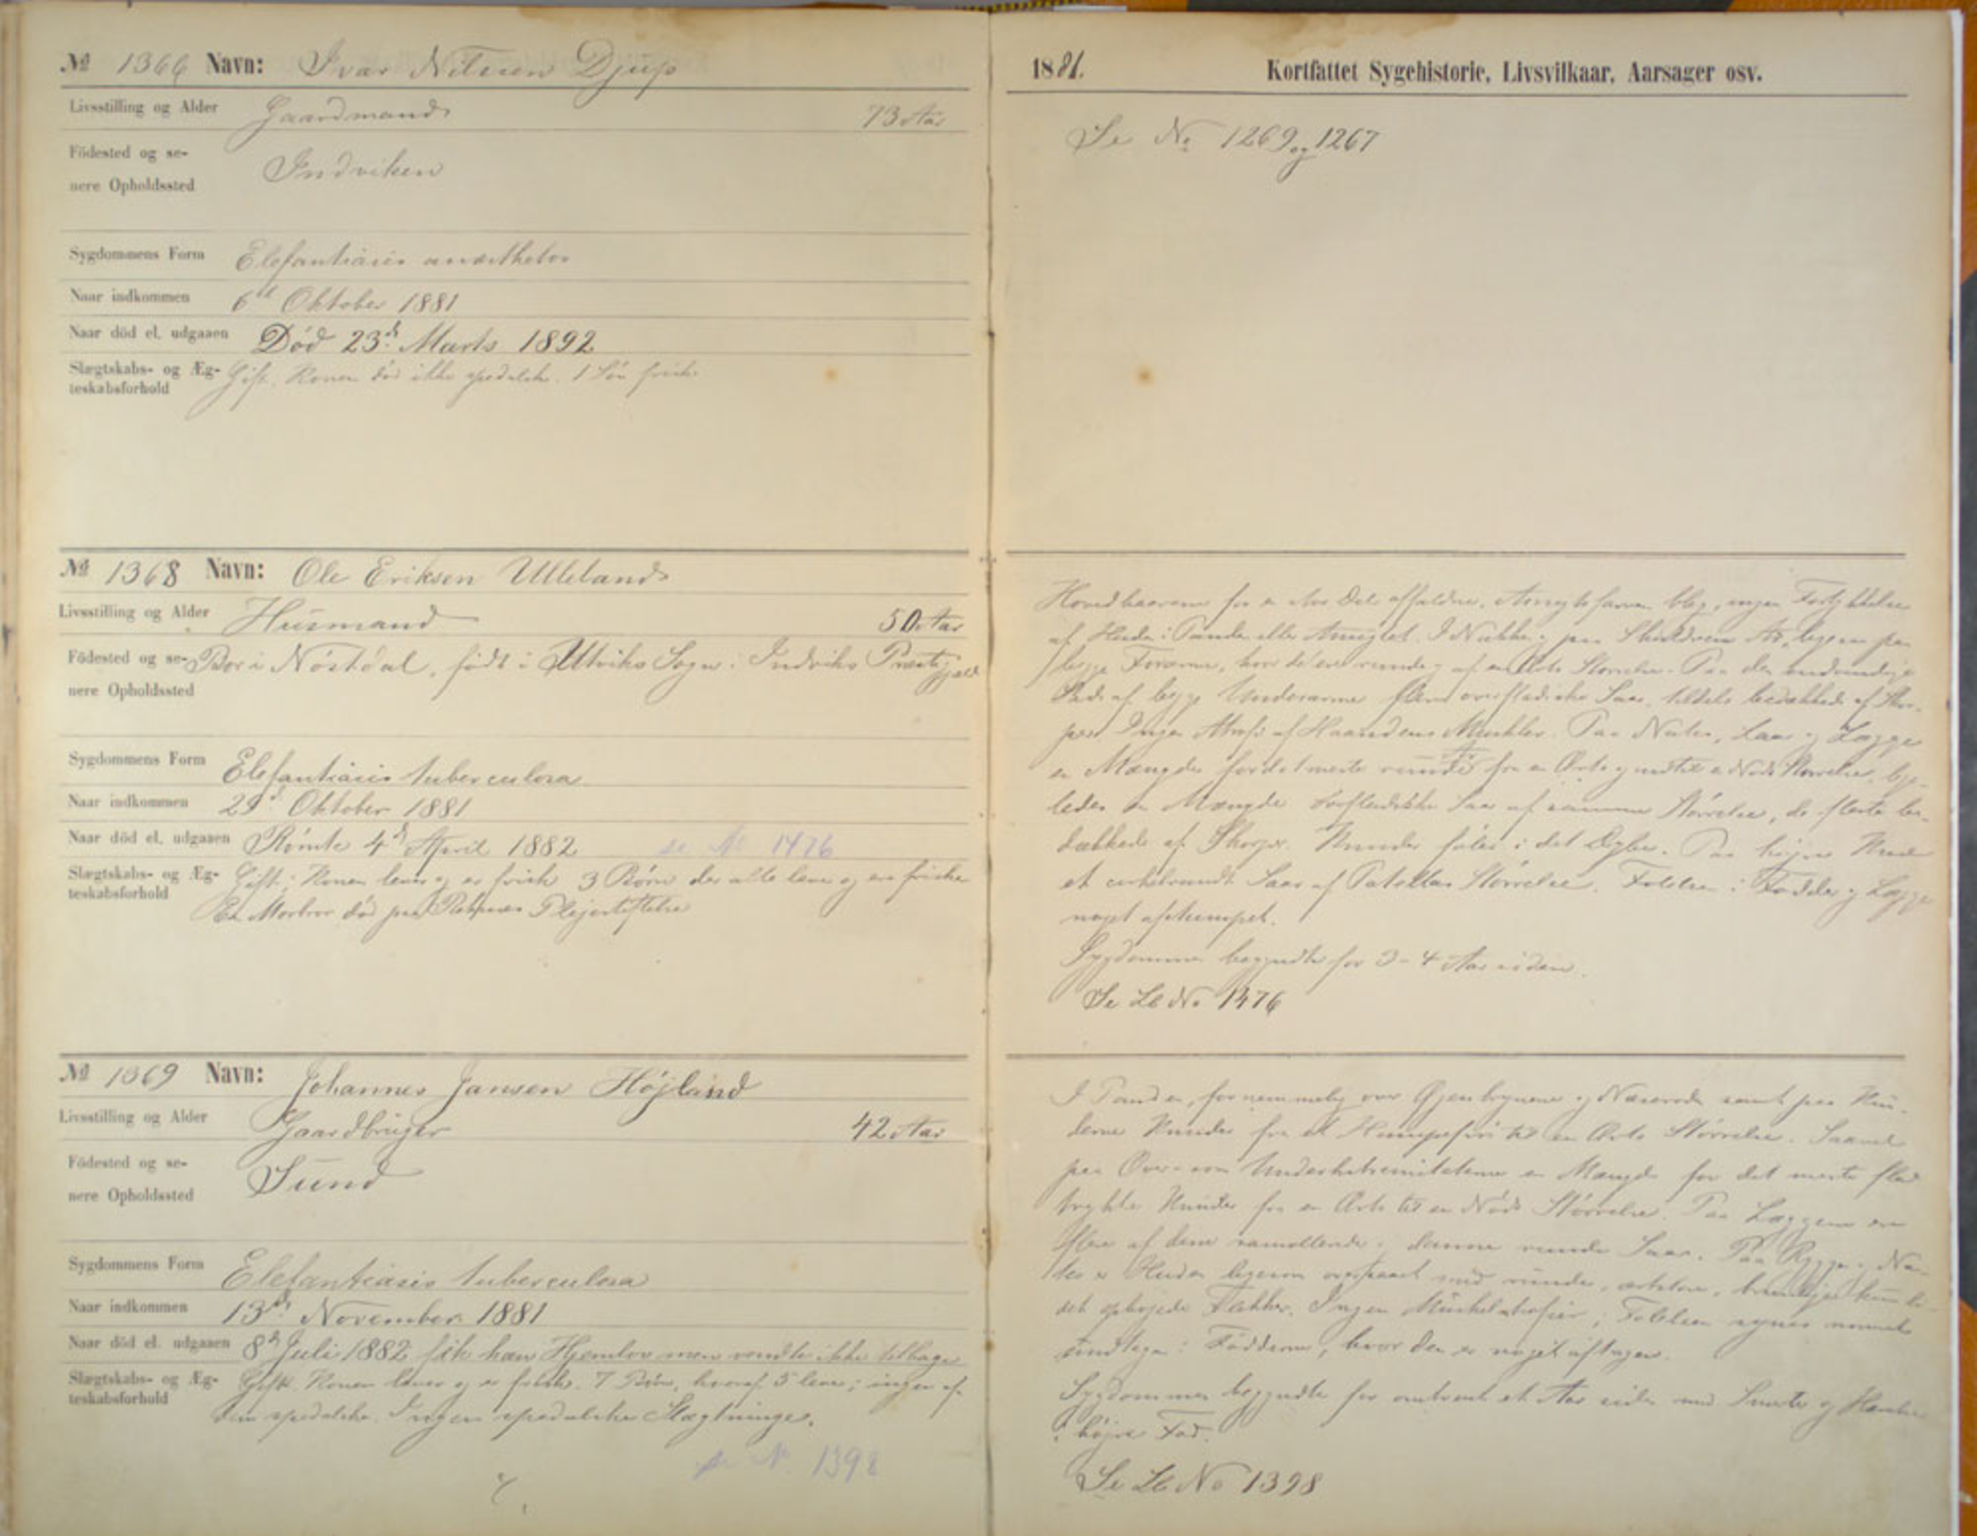 № 1366 Navn: Ivar Nilsen Djup
Livsstilling og Alder Gaardmand 73 Aar
Födested og se-
nere Opholdssted Indviken
Sygdommens Form Elefantiasis anæsthetos
Naar indkommen 6te Oktober 1881
Naar död el. udgaaen Död 23de Marts 1892
Slægtskabs- og Æg-
teskabsforhold Gift. Konen död ikke spedalsk. 1 Sön frisk.
№ 1368 Navn: Ole Eriksen Ulleland
Livsstilling og Alder Husmand 50 Aar
Födested og se-
nere Opholdssted Bor i Nöstdal, födt i Utviks Sogn i Indviks Præstegjæld
Sygdommens Form Elefantiasis tuberculosa
Naar indkommen 29de Oktober 1881
Naar död el. udgaaen Römte 4de April 1882 se № 1476
Slægtskabs- og Æg-
teskabsforhold Gift; Konen lever og er frisk 3 Börn der alle leve og ere friske
En Morbror död paa Plejestiftelse
№ 1369 Navn: Johannes Jansen Höjland
Livsstilling og Alder Gaardbruger 42 Aar
Födested og se-
nere Opholdssted Sund
Sygdommens Form Elefantiasis tuberculosa
Naar indkommen 13de November 1881
Naar död el. udgaaen 8de Juli 1882 fik han Hjemlov men vendte ikke tilbage
Slægtskabs- og Æg-
teskabsforhold Gift. Konen lever og er frisk. 7 Börn, hvoraf 5 leve; ingen af
dem spedalske. Ingen spedalske Slægtninge.
se № 1398
1881. Kortfattet Sygehistorie, Livsvilkaar, Aarsager osv.
Se No 1269 og 1267
Hovedhaarene for en stor Del affaldne. Ansigtsfarven bleg, ingen Fortykkelse
af Huden i Panden eller Ansigtet. I Nakke og paa
begge Forarme, hvor de ere runde og af en Erts Störrelse. Paa den
Side af begge Underarme flere overfladiske Saar, tildels bedækkede af Skor-
per. Ingen Atrofi af Haandens Muskler. Paa Nates, Laar og Lægge
en Mængde for det meste runde fra en Erts og indtil en Nöds Störrelse,
ledes en Mængde overfladiske Saar af samme Störrelse, de fleste be-
dækkede af Skorper. Knuder föles i det Dybe. Paa höjre Knæ
et cirkelrundt Saar af Patellas Störrelse. Fölelsen i Födder og Lægge
noget afstumpet.
Sygdommen begyndte for 3-4 Aar siden.
Se Lb No 1476
I Panden, fornemmelig over Öjenbrynene og Næserod samt paa Kin-
derne Knuder fra et Hampefrös til en Erts Störrelse. Saavel
paa Over- som Underextremiteterne en Mængde for det meste flad
trykte Knuder fra en Erts til en Nöds Störrelse. Paa Læggene ere
flere af disse danne runde Saar. Paa Ryggen og Na-
tes er Huden ligesom oversaaet med runde,
det ophöjede Flækker. Ingen Muskelatrofier; Fölelsen synes normal
undtagen i Födderne, hvor den er noget aftagen.
Sygdommen begyndte for omtrent et Aar siden med Smerter og
i höjre Fod.
Se Lb No 1398